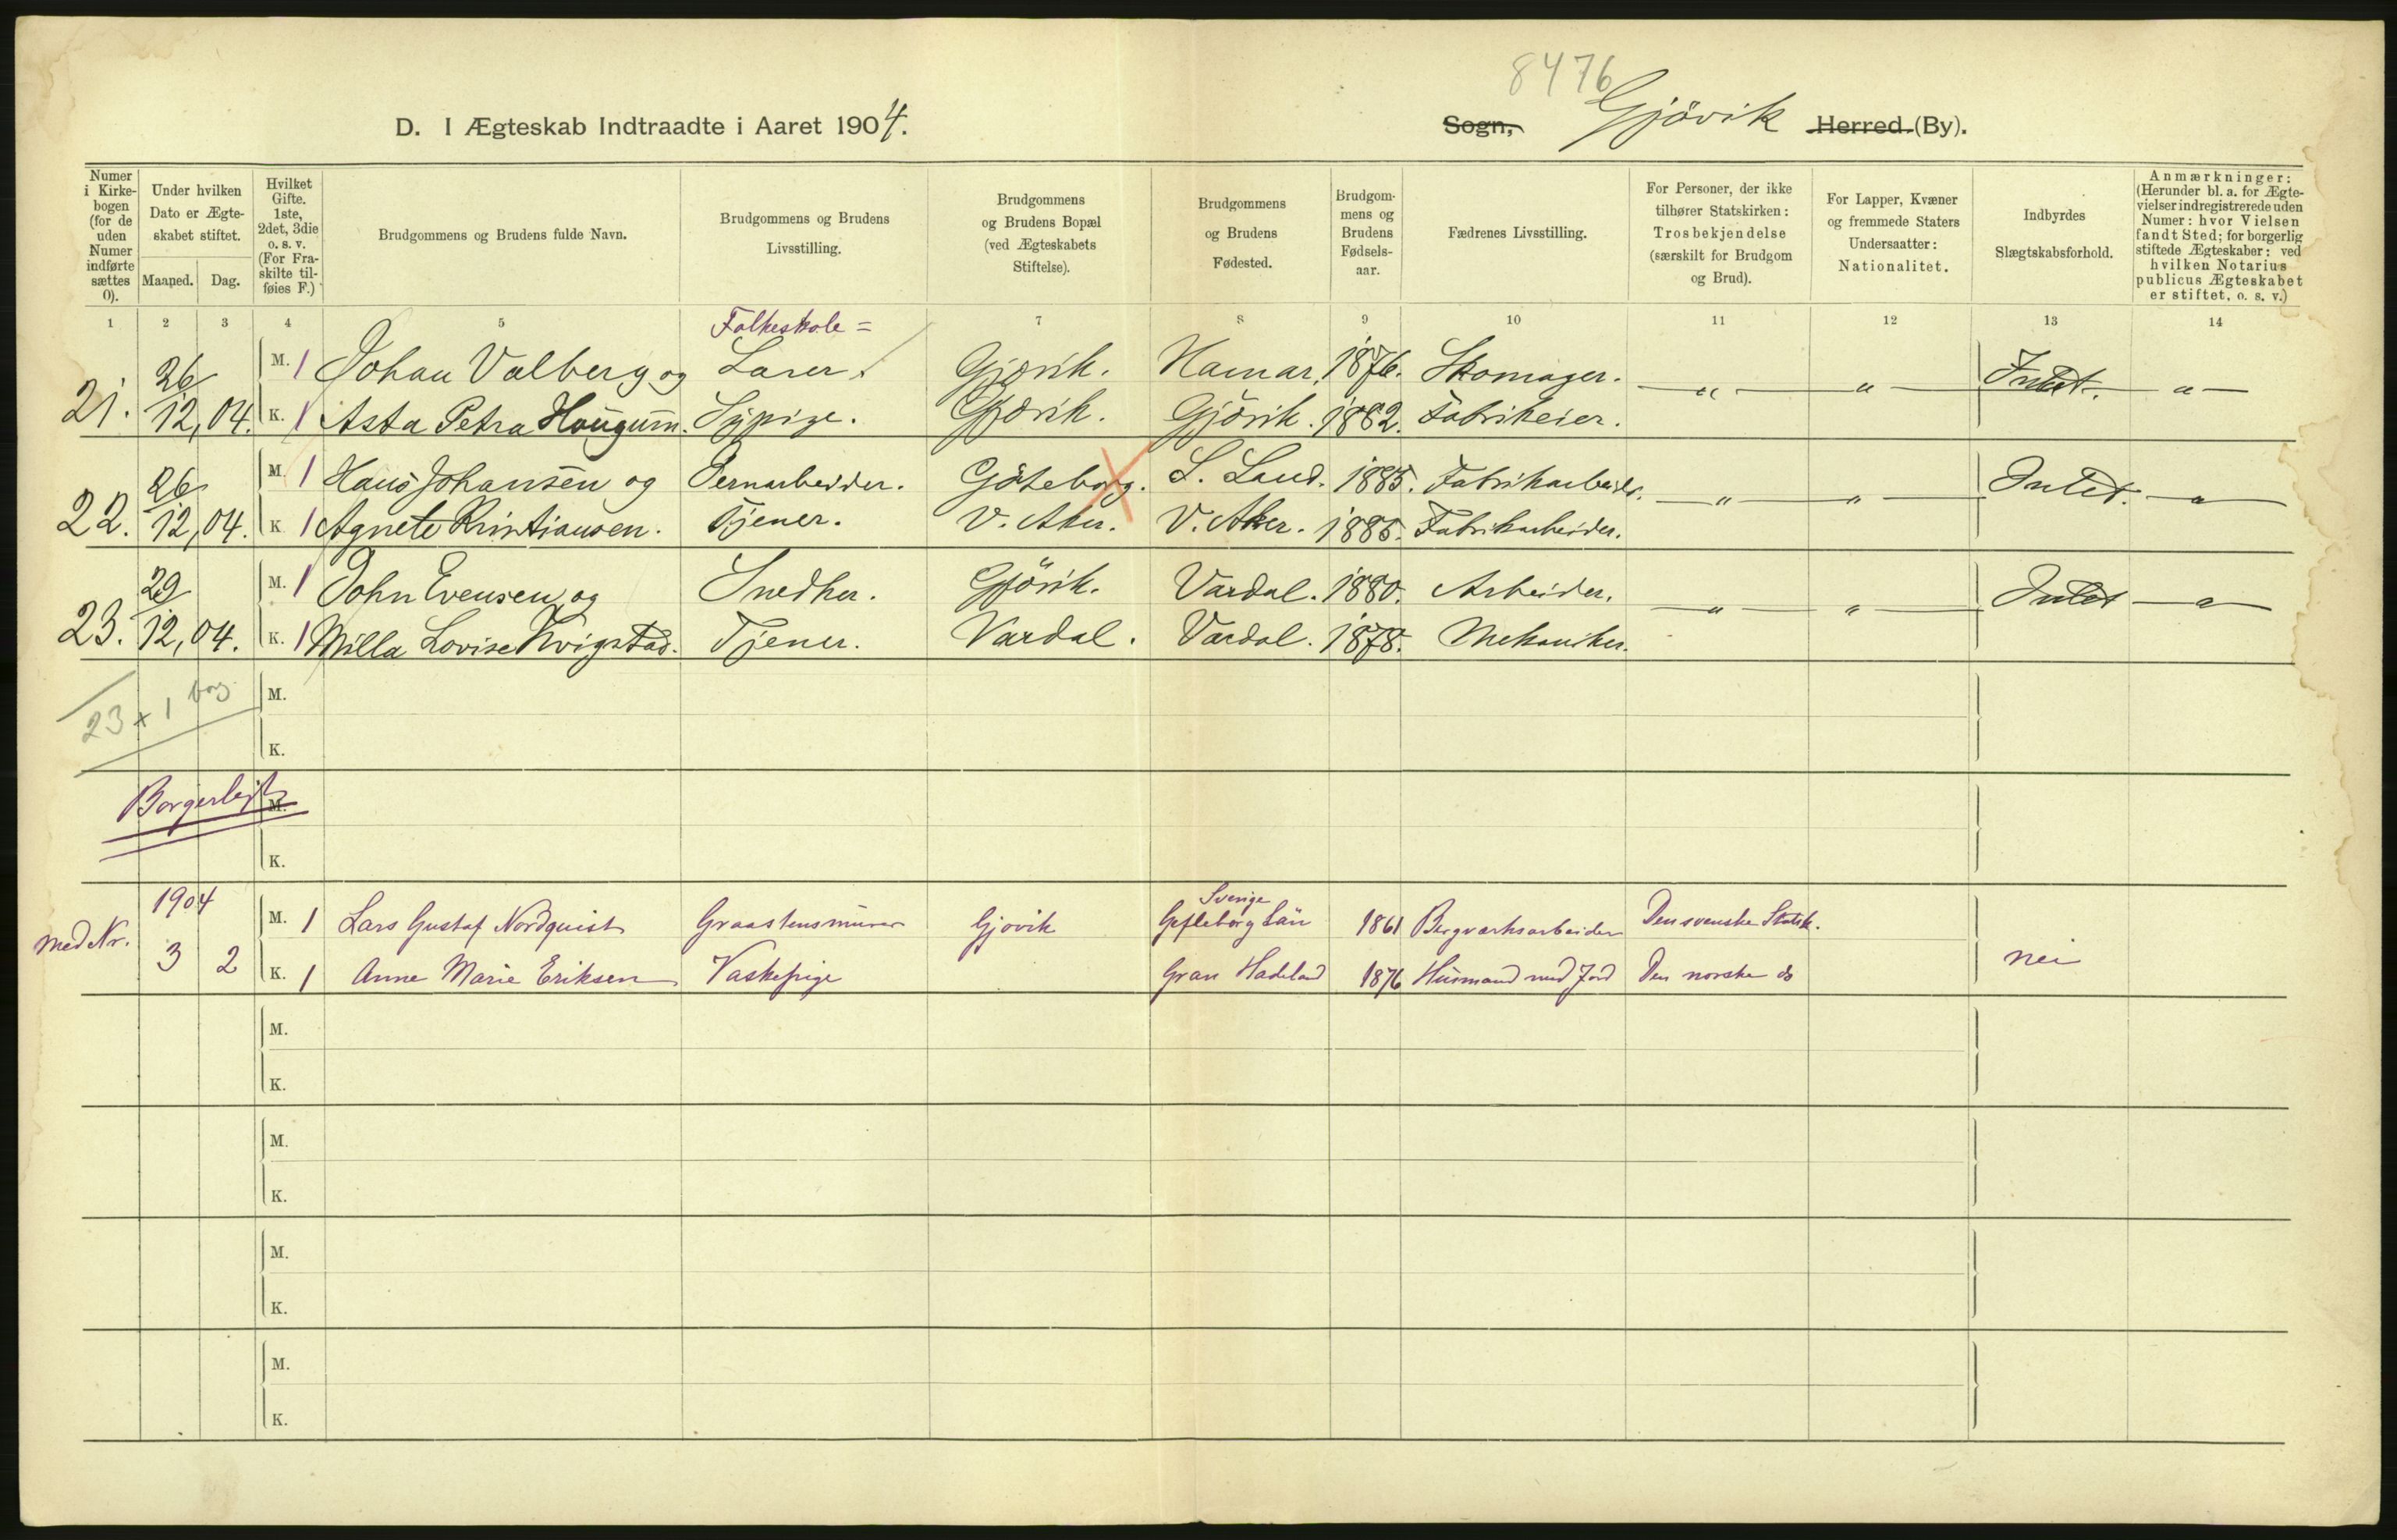 8476
D. I Ægteskab Indtraadte i Aaret 1904.
Sogn, Gjövik Herred (By).
Numer i Kirke-bogen (for de uden Numer indførte sættes 0).
Under hvilken Dato er Ægte-skabet stiftet.
Maaned. Dag.
Hvilket Gifte. 1ste, 2det, 3die o. s. v. (For Fra-skilte til-føies F.)
Brudgommens og Brudens fulde Navn.
Brudgommens og Brudens Livsstilling.
Brudgommens og Brudens Bopæl (ved Ægteskabets Stiftelse).
Brudgommens og Brudens Fødested.
Brudgom-mens og Brudens Fødsels-aar.
Fædrenes Livsstilling.
For Personer, der ikke tilhører Statskirken: Trosbekjendelse (særskilt for Brudgom og Brud).
For Lapper, Kvæner og fremmede Staters Undersaatter: Nationalitet.
Indbyrdes Slægtskabsforhold.
Anmærkninger: (Herunder bl. a. for Ægte-vielser indregistrerede uden Numer: hvor Vielsen fandt Sted; for borgerlig stiftede Ægteskaber: ved hvilken Notarius publicus Ægteskabet er stiftet, o. s. v.)
1 2 3 4 5 7 8 9 10 11 12 13 14
Folkeskole =
21. 26/12, 04. M. 1 Johan Valberg og Lærer. Gjøvik. Hamar. 1876. Skomager. — " — " — Intet. — " —
K. 1 Asta Petra Haugum. Sypige. Gjøvik. Gjövik. 1882. Fabrikeier.
22. 26/12, 04. M. 1 Hans Johansen og Jernarbeider. Göteborg. S. Land. 1885. Fabrikarbeider. — " — " — Intet. — " —
K. 1 Agnete Kristiansen. Tjener. V. Aker. V. Aker. 1885. Fabrikarbeider.
23. 29/12, 04. M. 1 John Evensen og Snedker. Gjövik. Vardal. 1880. Arbeider. — " — " — Intet — " —
K. 1 Milla Lovise Kvigstad. Tjener. Vardal. Vardal. 1878. Mekaniker.
23 + 1 borg
M.
K.
Borgerligt
M.
K.
1904
Sverige
Med Nr. 3 2 M. 1 Lars Gustaf Nordquist Graastensmurer Gjøvik Gefleborg Län 1861 Bergværksarbeider Den svenske Statsk.
K. 1 Anne Marie Eriksen Vaskepige Gran Hadeland 1876 Husmand med Jord Den norske do nei
M.
K.
M.
K.
M.
K.
M.
K.